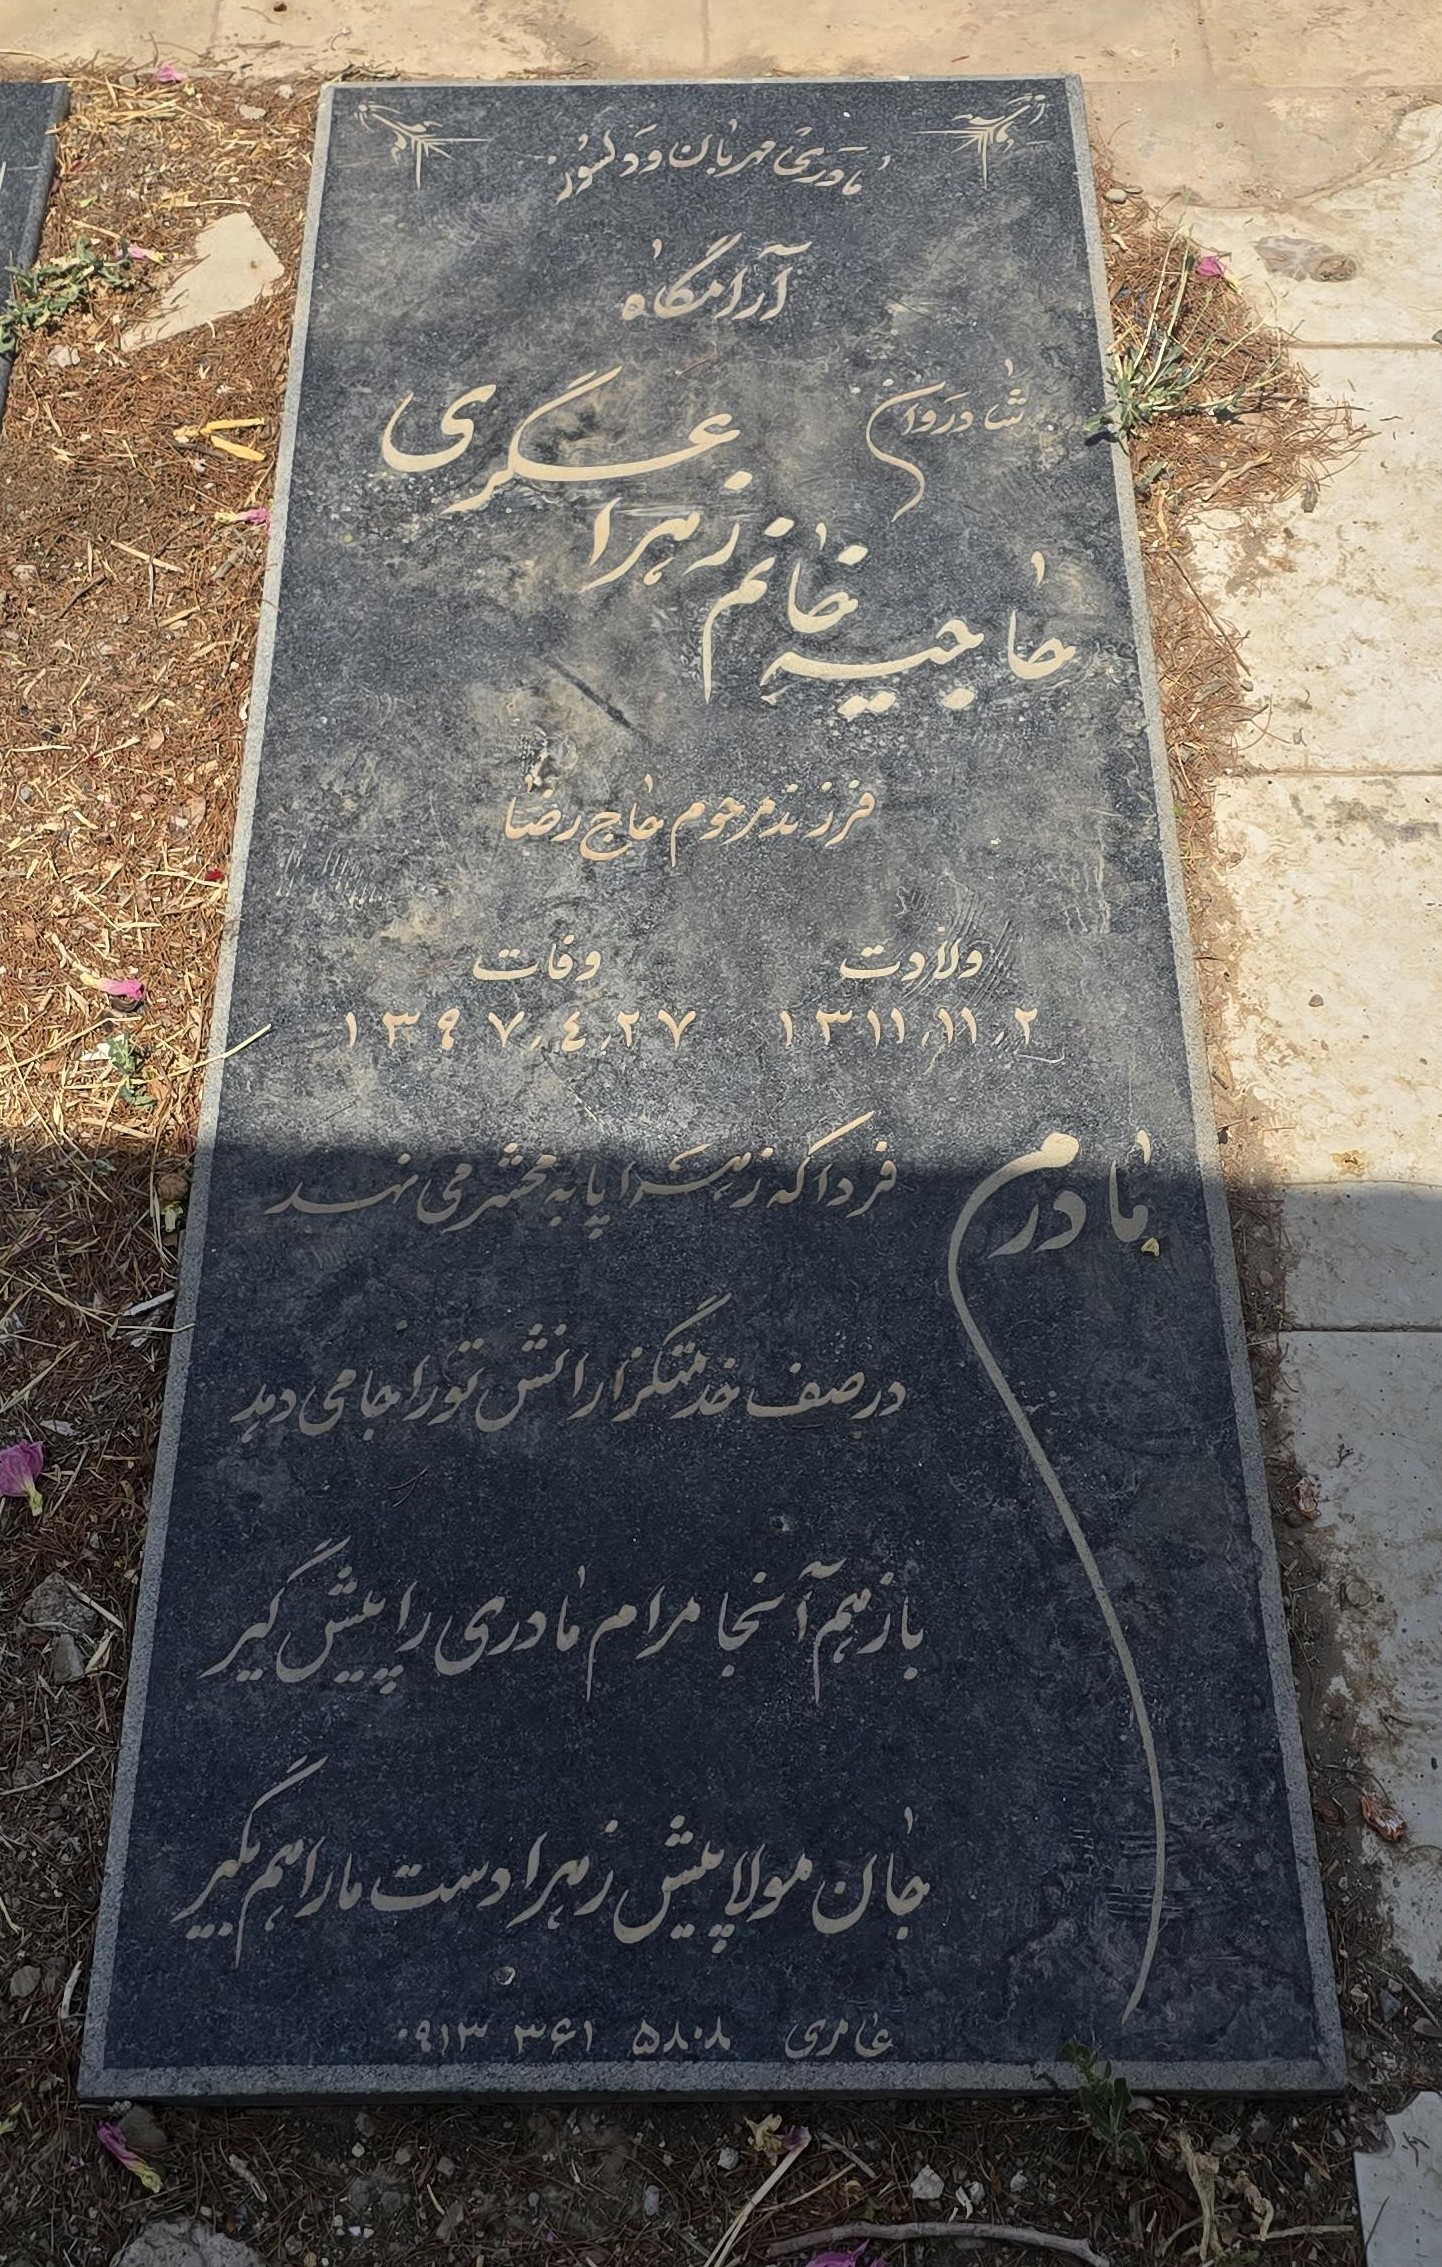 مادری مهربان و دلسوز
آرامگاه
شادروان
حاجیه خانم زهرا عسگری
فرزند مرحوم حاج رضا
ولادت وفات
۱۳۱۱٫۱۱٫۲ ۱۳۹۷٫٤٫۲۷
مادرم فردا که زهرا پا به محشر می نهد
در صف خدمتگزارانش تو را جا می دهد
باز هم آنجا مرام مادری را پیش گیر
جان مولا پیش زهرا دست ما را هم بگیر
عامری ۰۹۱۳ ۳۶۱